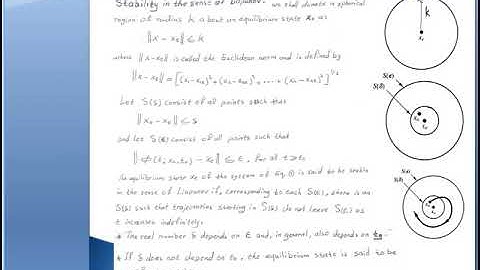 Stability in the sense of Liapunov. we shall denote a spherical
region of radius k about an equilibrium state xe as
‖x - xe‖ ≤ k
where ‖x - xe‖ is called the Euclidean norm and is defined by
‖x - xe‖ = [(x1 - x1e)² + (x2 - x2e)² + ..... + (xn - xne)²]^1/2
Let S(δ) consist of all points such that
‖x0 - xe‖ ≤ δ
and let S(ε) consist of all points such that
‖φ(t; x0, t0) - xe‖ ≤ ε, for all t ≥ t0
An equilibrium state xe of the system of Eq. ① is said to be stable
in the sense of Liapunov if, corresponding to each S(ε), there is an
S(δ) such that trajectories starting in S(δ) do not leave S(ε) as
t increases indefinitely.
* The real number δ depends on ε and, in general, also depends on t0.
* If δ does not depend on t0, the equilibrium state is said to be
k
xe
S(ε)
S(δ)
x0
xe
S(ε)
S(δ)